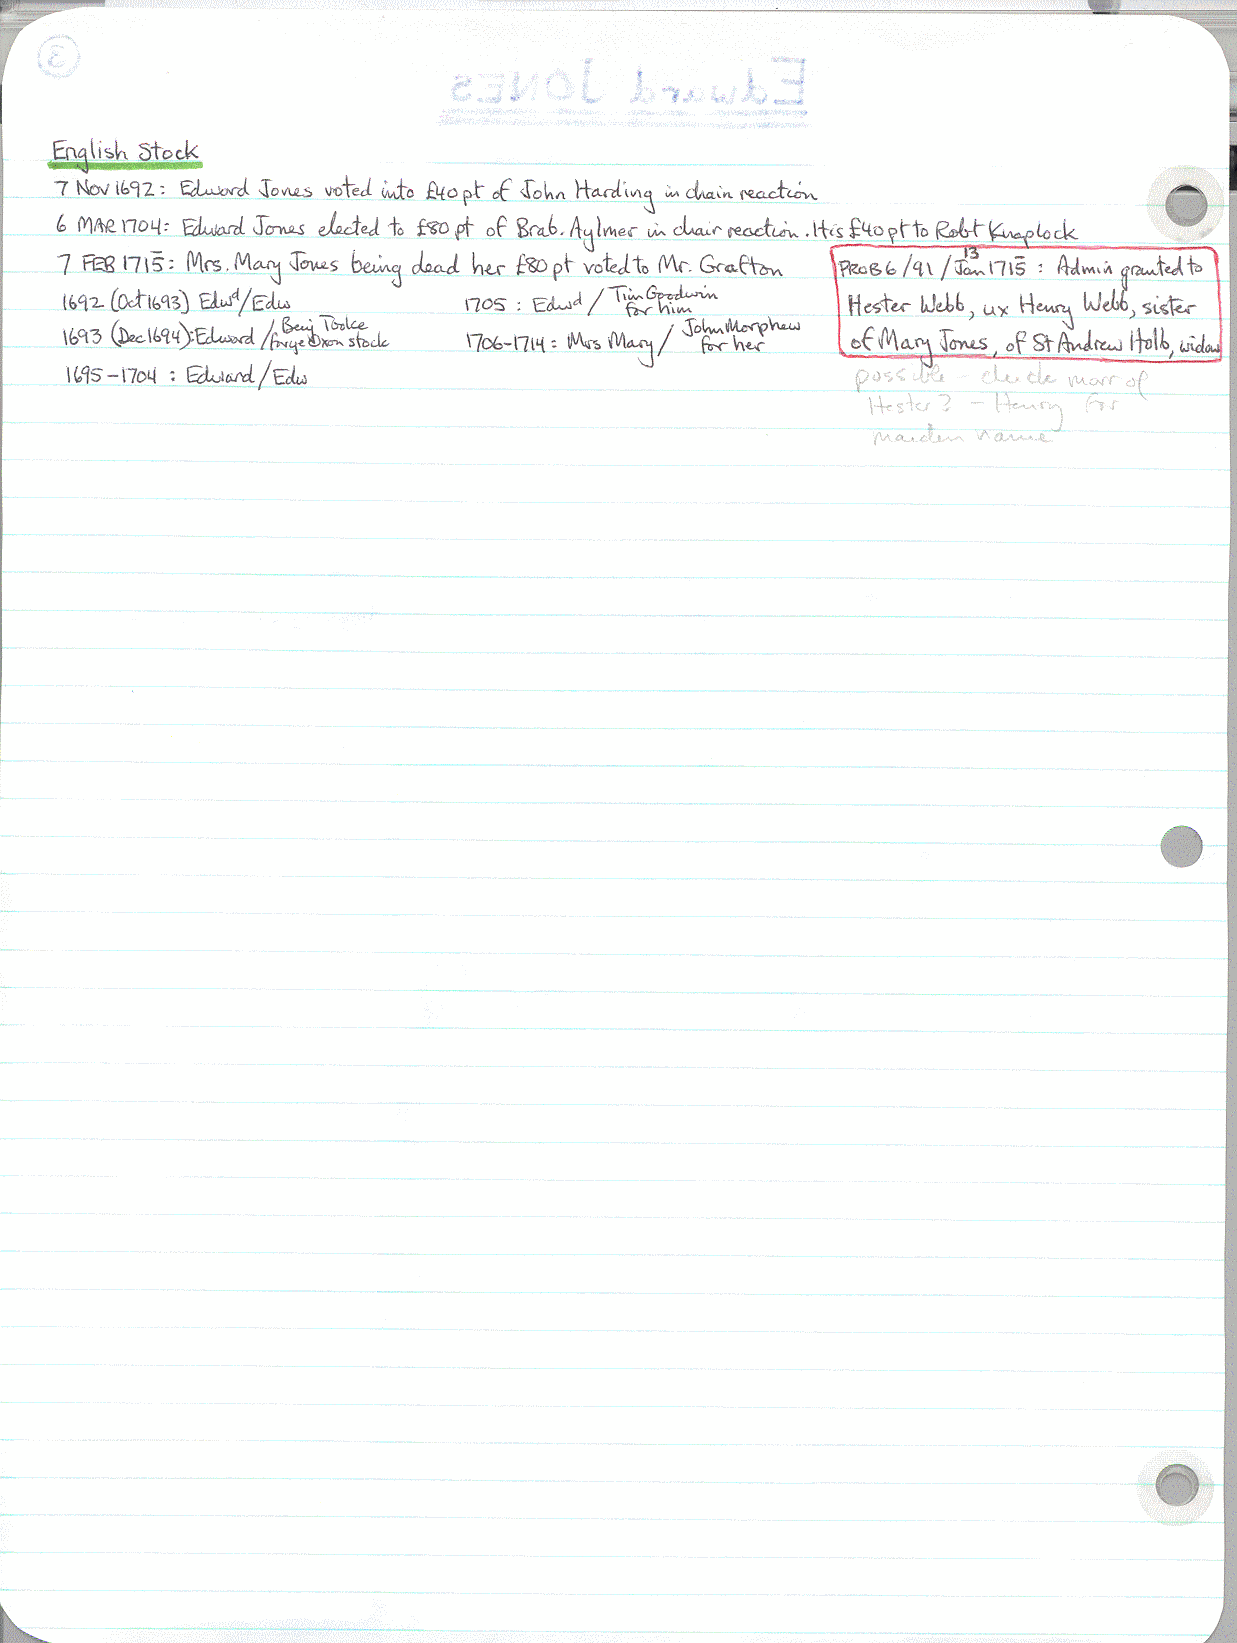 English Stock
7 Nov 1692: Edward Jones voted into £40 pt of John Harding in chain reaction
6 MAR 1704: Edward Jones elected to £80 pt of Brab. Aylmer in chair reaction. His £40 pt to Robt Knaplock
7 FEB 1715: Mrs. Mary Jones being dead her £80 pt voted to Mr. Grafton
1692 (Oct 1693) Edwd/Edw
1693 (Dec 1694): Edward / Benj Tooke stock
1695-1704 : Edward/Edw
1705 : Edwd / Tim Goodwin for him
1706-1714: Mrs Mary / John Morphew for her
PROB 6/91/13 Jan 1715 : Admin granted to
Hester Webb, ux Henry Webb, sister
of Mary Jones, of St Andrew Holb, widow
possible - marr of
Hester? - Henry for
maiden name
Edward JONES
3